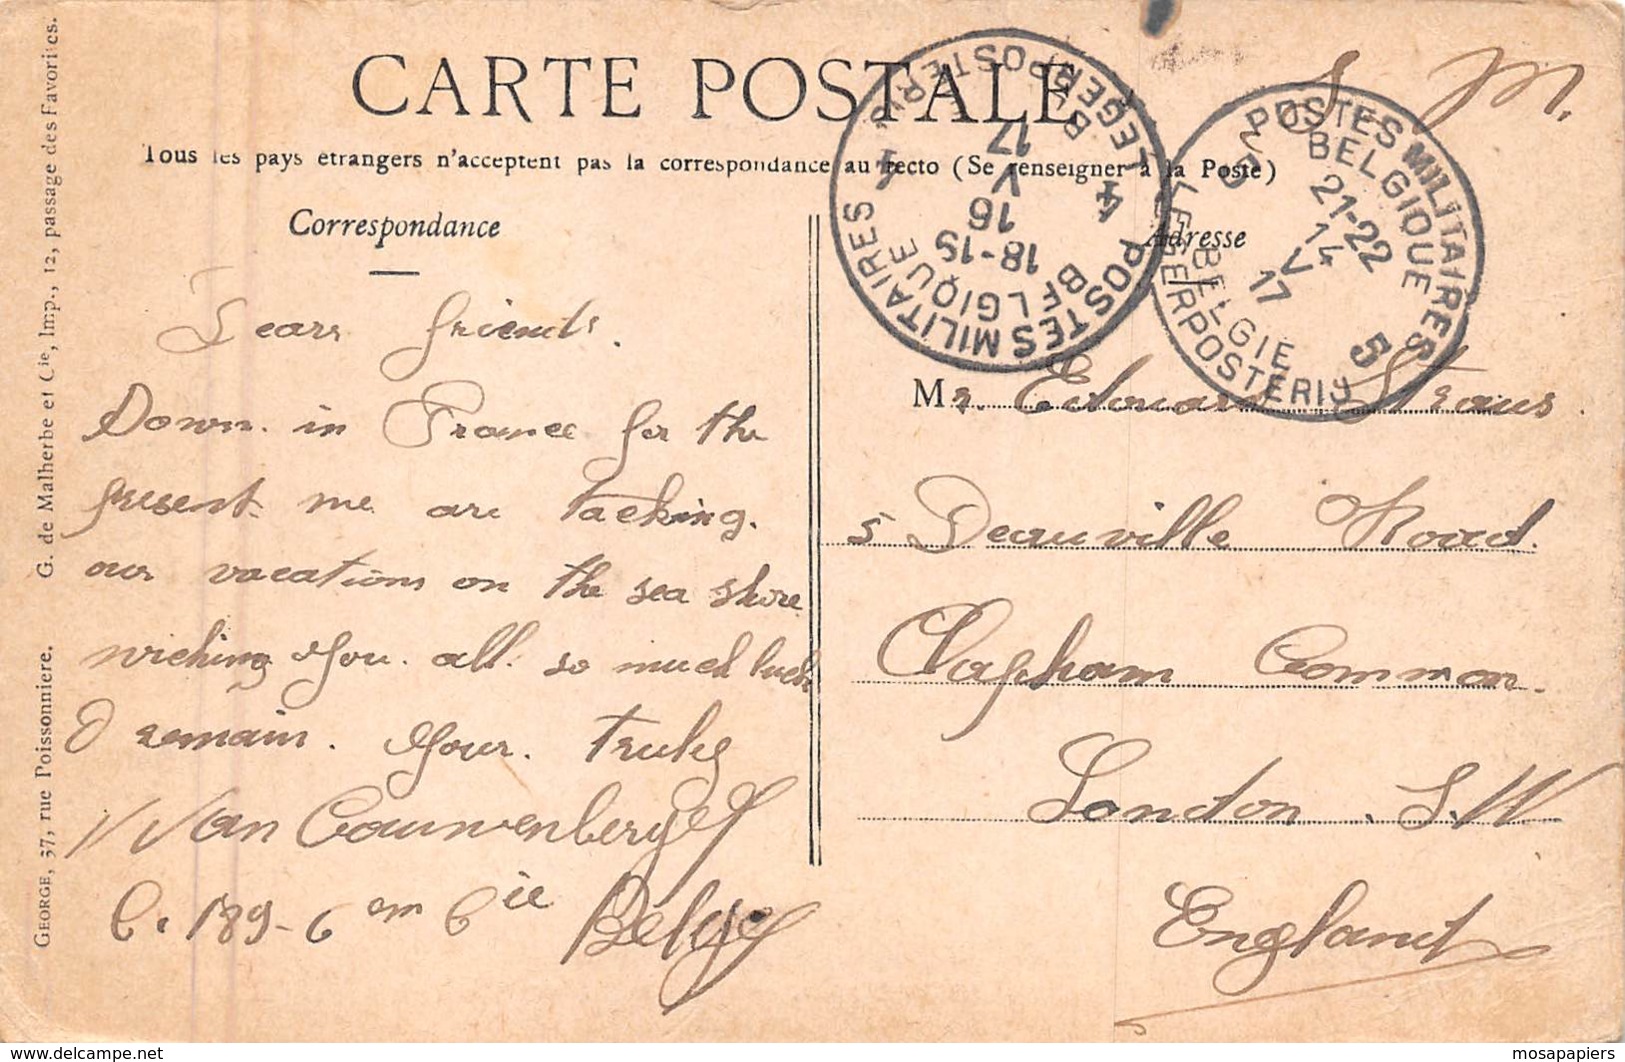 CARTE POSTALE
Tous les pays étrangers n'acceptent pas la correspondance au recto (Se renseigner à la Poste)
Correspondance
Adresse
S. M.
Dears friends.
Down in France for the
present me are tacking.
our vacations on the sea shore
wiching you. all. so much luck
I remain. your. truly
V Van Cauwenberghe
C. 189 - 6 em Cie Belge
Mr. Edouard Straus.
5 Deauville Road.
Clapham Common.
London. S.W
England
POSTES MILITAIRES
BELGIQUE
18-19
16
V
17
4 4
LEGERPOSTERIJ
POSTES MILITAIRES
BELGIQUE
21-22
14
V
17
5 5
BELGIE
LEGERPOSTERIJ
GEORGE, 37, rue Poissonniere. G. de Malherbe et Cie, Imp., 12, passage des Favorites.
www.delcampe.net
mosapapiers